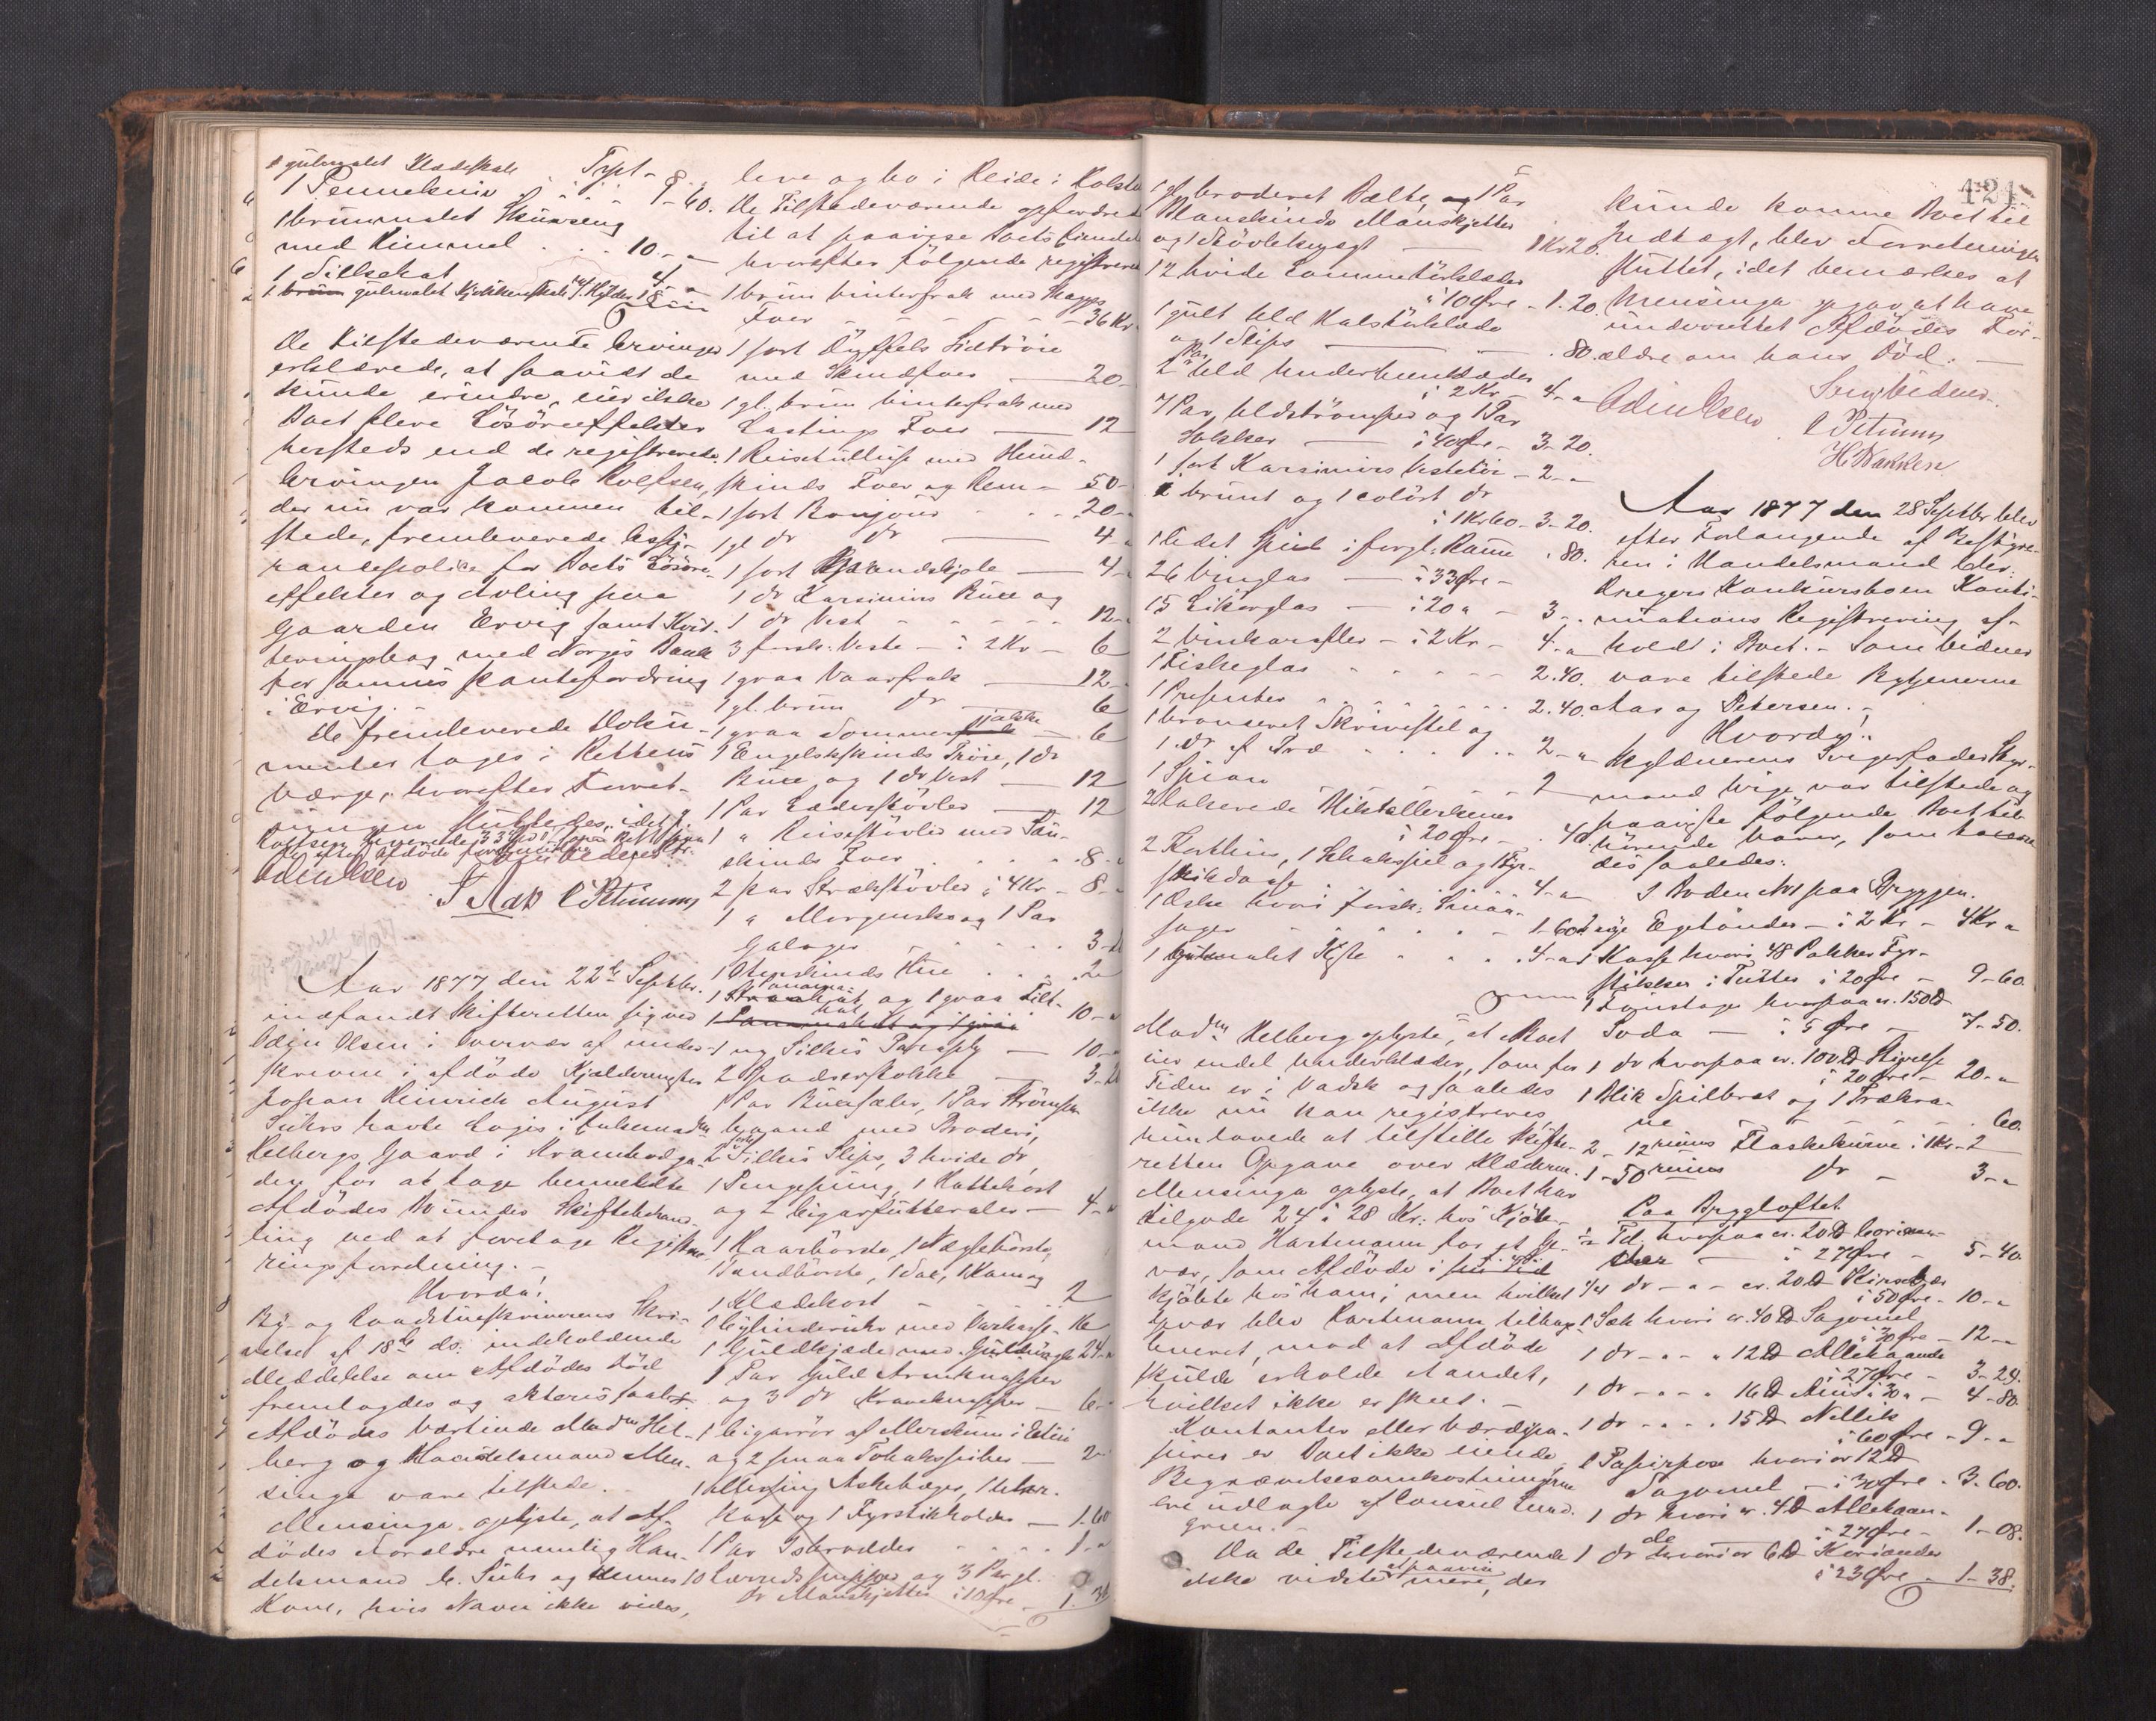 1 gulmalet Klædeskab Trpt - 8 -
1 Pennekniv - - - 1 - 40.
1 brunmalet Skuvseng
med Himmel . . 10. -
1 Sillsekat 4.
1 gulmalet Kjøkkenskab 8
De tilstedeværende Arvinger
erklærede, at saavidt de
kunde erindre, eier ikke
Boet flere Løsøreeffekter
hersteds end de registrerede.
Arvingen Jacob Rolfsen,
der nu var kommen til-
stede, fremleverede Assu-
rancepolice for Boets Løsøre-
effekter og Avling paa
Gaarden Ervig samt Kvit-
teringsbog med Norges Bank
for sammes Pantefordring
i Ervig. -
De fremleverede Doku-
menter toges i Rettens
Værge, hvorefter Forret-
ningen sluttedes, idet J.
Rolfsen
Odin Olsen
J Aas C Petersen
Aar 1877 den 22de Septbr.
indfandt Skifteretten sig ved
Odin Olsen i Overvær af under-
skrevne i afdøde Kjældermester
Johan Heinrich August
Sührs havte Logis i Enkemadm
Helbergs Gaard i Kramboga-
den for at tage bemeldte
Afdødes Bo under Skiftebehand-
ling ved at foretage Registre-
ringsforretning. -
Hvorda!
By- og Raadstueskriverens Skri-
velse af 18de ds. indeholdende
Meddelelse om Afdødes Død
fremlagdes og akteres saal.
Afdødes Værtinde Madm Hel-
berg og Handelsmand Men-
singa vare tilstede.
Mensinga oplyste, at Af-
dødes Forældre nemlig Han-
delsmand C. Sührs og dennes
Kone, hvis Navn ikke vides,
leve og bo i Heide i Holste
De Tilstedeværende opfordred
til at paavise Boets Eiendele
hvorefter følgende registrere
1 brun Vinterfrak med Skapps
Foer - - - - - 36 Kr.
1 sort Dyffels Sidtrøie
med Skindfoer - 20 -
1 gl. brun Vinterfrak med
Lastings Foer - 12
1 Reisebulluft med Hund-
skinds Foer og Rem - 50 -
1 sort Bonjour - - 20 -
1 gl dr dr - 4 -
1 sort Spadserkjole - 4 -
1 dr Kasimirs Buxe og
1 dr Vest - - - - 12 -
3 forsk. Veste - à 2 Kr - 6
1 graa Vaarfrak - 12 -
1 gl. brun dr - 6
1 graa Sommerjakke - 6
1 Engelskskinds Trøie, 1 dr
Buxe og 1 dr Vest - 12
1 Par Laderstøvler - 12
1 " Reisestøvler med Saue-
skinds Foer - - - 8 -
2 Par Strækstøvler à 4 Kr - 8 -
1 " Morgensko og 1 Par
Galoger - - - - 3 -
1 Oterskinds Hue - - 2
1 Panama-
hat og 1 graa Filt- 10 -
1 ny Silkes Paraply - 10 -
2 Spadserstokke - 3 - 20
1 Par Buxesæler, 1 Par Strømper
begaand med Broderi,
2 Silkes Slips, 3 hvide dr,
1 Pengepung, 1 Hattekost
og 2 Cigarfutteraler - 4 -
1 Haarbørste, 1 Neglebørste,
1 Tandbørste, 1 Sax, 1 Kam og
1 Klædekost - - - 2
1 Cylinderuhr med Uhrkasse - 16
1 Guldkjæde med Guldnøgle 24 -
1 Par Guld Armknapper
og 3 dr Kraveknapper - 6 -
1 Cigarrør af Merskum i Etui
og 2 smaa Tobakspiber - 2 -
1 Messing Askebæger, 1 Cigar-
kasse og 1 Fyrstikholder - 1.60
1 Par Isbrodder - - - 1 -
10 Lærredssnipper og 3 Par gl.
dr Manskjetter à 10 Øre - 1.30
121
1 gl. broderet Bælte, og 1 Par
Blanskinds Manskjetter
og 1 Støvleknægt - 1 Kr 20.
12 hvide Lommetørklæder
à 10 Øre - 1.20.
1 gult Uld Halstørklæde
og 1 Slips - . 80.
2 Par Uld Underbenklæder
à 2 Kr - 4 -
7 Par, Uldstrømper og 1 Par
Sokker - à 40 Øre - 3.20.
1 sort Kasimirs Vestetøi - 2 -
1 brunt og 1 colørt dr
à 1 Kr 60 - 3 - 20.
1 lidet Speil i forgl. Ramme . 80.
26 Vinglas - à 33 Øre -
15 Likørglas - à 20 " - 3 -
2 Vinkarafler - à 2 Kr - 4 -
1 Fiskeglas - - - 2.40.
1 Presenter - - - 2.40.
1 bronseret Skrivestel og
1 dr af Træ - - - 2 -
1 Spion - 2
2 lakerede Hiltallerkener
à 20 Øre - . 40.
2 Korthus, 1 Schakspil og 1 Fyr-
stikdaase - - - 4 -
1 Æske hvori forsk. Smaa-
sager - - - - 1.60
1 Gulmalet Kiste - - 4 -
Madm Helberg oplyste, at Boet
eier endel Underklæder, som for
Tiden er i Vadsk og saaledes
ikke nu kan registreres,
hun lovede at tilstille Skifte-
retten Opgave over Klæderne.
Mensinga oplyste, at Boet har
tilgode 24 à 28 Kr. hos Kjøb-
mand Hartmann for et Ge-
vær, som Afdøde i
kjøbte hos ham, men hvilket
Gevær blev Hartmann tilbage-
leveret, mod at Afdøde
skulde erholde et andet,
hvilket ikke er skeet. -
Kontanter eller Værdipa-
pirer er Boet ikke eiende,
Begravelsesomkostningerne
ere udlagte af Consul Lund-
green. -
Da de Tilstedeværende
ikke vidste at paavise mere, der
kunde komme Boet til
Indtægt, blev Forretningen
sluttet, idet bemærkes at
Mensinga opgav at have
underrettet Afdødes For-
ældre om hans Død. -
Som Vidner
Odin Olsen C Petersen
H. Bakken
Aar 1877 den 28 Septbr blev
efter Forlangende af Bestyre-
ren i Handelsmand Chr.
Kregers Konkursboen Konti-
nuations Registrering af-
holdt i Boet. - Som Vidner
vare tilstede Bytjenerne
Aas og Petersen. -
Hvorda!
Skyldnerens Svigerfader Skyds-
mand Wige var tilstede og
paaviste følgende Boet til-
hørende Varer, som taxere-
des saaledes:
I Boden No 1 paa Bryggen.
2 nye Egetønder - à 2 Kr - 4 Kr "
1 Kasse hvori 48 Pakker Fyr-
stikker i Futter à 20 Øre - 9 - 60.
1 Fajustage hvorpaa cr. 150 ℔
Soda - à 5 Øre - 7 - 50.
1 dr hvorpaa cr. 100 ℔ Stivelse
à 20 Øre - 20 -
1 Blik Spilbræt og 1 Trækra-
ne - - - . 60.
2 - 12 rums Flaskekurve à 1 Kr - 2
1 - 50 rums dr - 3 -
Paa Bryggloftet
½ Td. hvorpaa cr. 20 ℔ Corian-
der - à 27 Øre - 5 - 40
¼ dr - " - cr. 20 ℔ Kirsebær
à 50 Øre - 10 -
1 Sæk hvori cr. 40 ℔ Sagomel
à 30 Øre - 12 -
1 dr - " - " 12 ℔ Allehaande
à 27 Øre - 3 - 24.
1 dr - " - " 16 ℔ Anis à 30 " - 4 - 80.
1 dr - " - " 15 ℔ Nellik
à 60 Øre - 9 -
1 Papirpose hvori cr 12 ℔
Sagomel - à 30 Øre - 3.60.
1 dr hvori cr. 4 ℔ Allehaan-
de à 27 Øre - 1 - 08.
1 dr hvori cr 6 ℔ Koriander
à 23 Øre - 1 - 38.